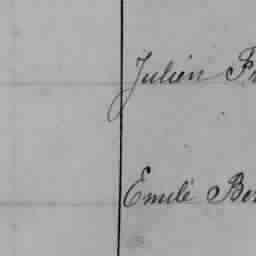 Julien Fr
Emile Bor